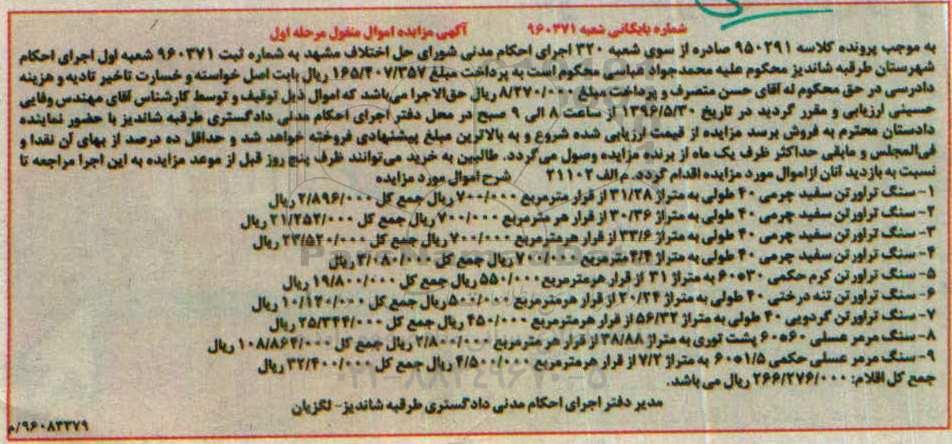 شماره بایگانی شعبه ۹۶۰۳۷۱ آگهی مزایده اموال منقول مرحله اول
به موجب پرونده کلاسه ۹۵۰۲۹۱ صادره از سوی شعبه ۳۲۰ اجرای احکام مدنی شورای حل اختلاف مشهد به شماره ثبت ۹۶۰۳۷۱ شعبه اول اجرای احکام
شهرستان طرقبه شاندیز محکوم علیه محمدجواد عباسی محکوم است به پرداخت مبلغ ۱۶۵/۴۰۷/۳۵۷ ریال بابت اصل خواسته و خسارت تاخیر تادیه و هزینه
دادرسی در حق محکوم له آقای حسن متصرف و پرداخت مبلغ ۸/۲۷۰/۰۰۰ ریال حق‌الاجرا می‌باشد که اموال ذیل توقیف و توسط کارشناس آقای مهندس وفایی
حسینی ارزیابی و مقرر گردید در تاریخ ۱۳۹۶/۵/۳۰ از ساعت ۸ الی ۹ صبح در محل دفتر اجرای احکام مدنی دادگستری طرقبه شاندیز با حضور نماینده
دادستان محترم به فروش برسد مزایده از قیمت ارزیابی شده شروع و به بالاترین مبلغ پیشنهادی فروخته خواهد شد و حداقل ده درصد از بهای آن نقدا و
فی‌المجلس و مابقی حداکثر ظرف یک ماه از برنده مزایده وصول می‌گردد. طالبین به خرید می‌توانند ظرف پنج روز قبل از موعد مزایده به این اجرا مراجعه تا
نسبت به بازدید آنان از اموال مورد مزایده اقدام گردد. م الف ۲۱۱۰۲ شرح اموال مورد مزایده
۱- سنگ تراورتن سفید چرمی ۴۰ طولی به متراژ ۳۱/۲۸ از قرار مترمربع ۷۰۰/۰۰۰ ریال جمع کل ۲/۸۹۶/۰۰۰ ریال
۲- سنگ تراورتن سفید چرمی ۴۰ طولی به متراژ ۳۰/۳۶ از قرار هر مترمربع ۷۰۰/۰۰۰ ریال جمع کل ۲۱/۲۵۲/۰۰۰ ریال
۳- سنگ تراورتن سفید چرمی ۴۰ طولی به متراژ ۳۳/۶ از قرار هرمترمربع ۷۰۰/۰۰۰ ریال جمع کل ۲۳/۵۲۰/۰۰۰ ریال
۴- سنگ تراورتن سفید چرمی ۴۰ طولی به متراژ ۴/۴ مترمربع ۷۰۰/۰۰۰ ریال جمع کل ۳/۰۸۰/۰۰۰ ریال
۵- سنگ تراورتن کرم حکمی ۳۰*۶۰ به متراژ ۳۱ از قرار هرمترمربع ۵۵۰/۰۰۰ ریال جمع کل ۱۹/۸۰۰/۰۰۰ ریال
۶- سنگ تراورتن تنه درختی ۴۰ طولی به متراژ ۲۰/۲۴ از قرار هرمترمربع ۵۰۰/۰۰۰ ریال جمع کل ۱۰/۱۲۰/۰۰۰ ریال
۷- سنگ تراورتن گردویی ۴۰ طولی به متراژ ۵۶/۳۲ از قرار هرمترمربع ۴۵۰/۰۰۰ ریال جمع کل ۲۵/۳۴۴/۰۰۰ ریال
۸- سنگ مرمر عسلی ۶۰*۶۰ پشت توری به متراژ ۳۸/۸۸ از قرار هر مترمربع ۲/۸۰۰/۰۰۰ ریال جمع کل ۱۰۸/۸۶۴/۰۰۰ ریال
۹- سنگ مرمر عسلی حکمی ۱/۵*۶۰ به متراژ ۷/۲ از قرار هرمترمربع ۴/۵۰۰/۰۰۰ ریال جمع کل ۳۲/۴۰۰/۰۰۰ ریال
جمع کل اقلام: ۲۶۶/۲۷۶/۰۰۰ ریال می باشد.
۰۲۱-۸۸۳۴۹۶۷۰-۵
مدیر دفتر اجرای احکام مدنی دادگستری طرقبه شاندیز- لگزیان
۹۶۰۸۳۳۷۹/م